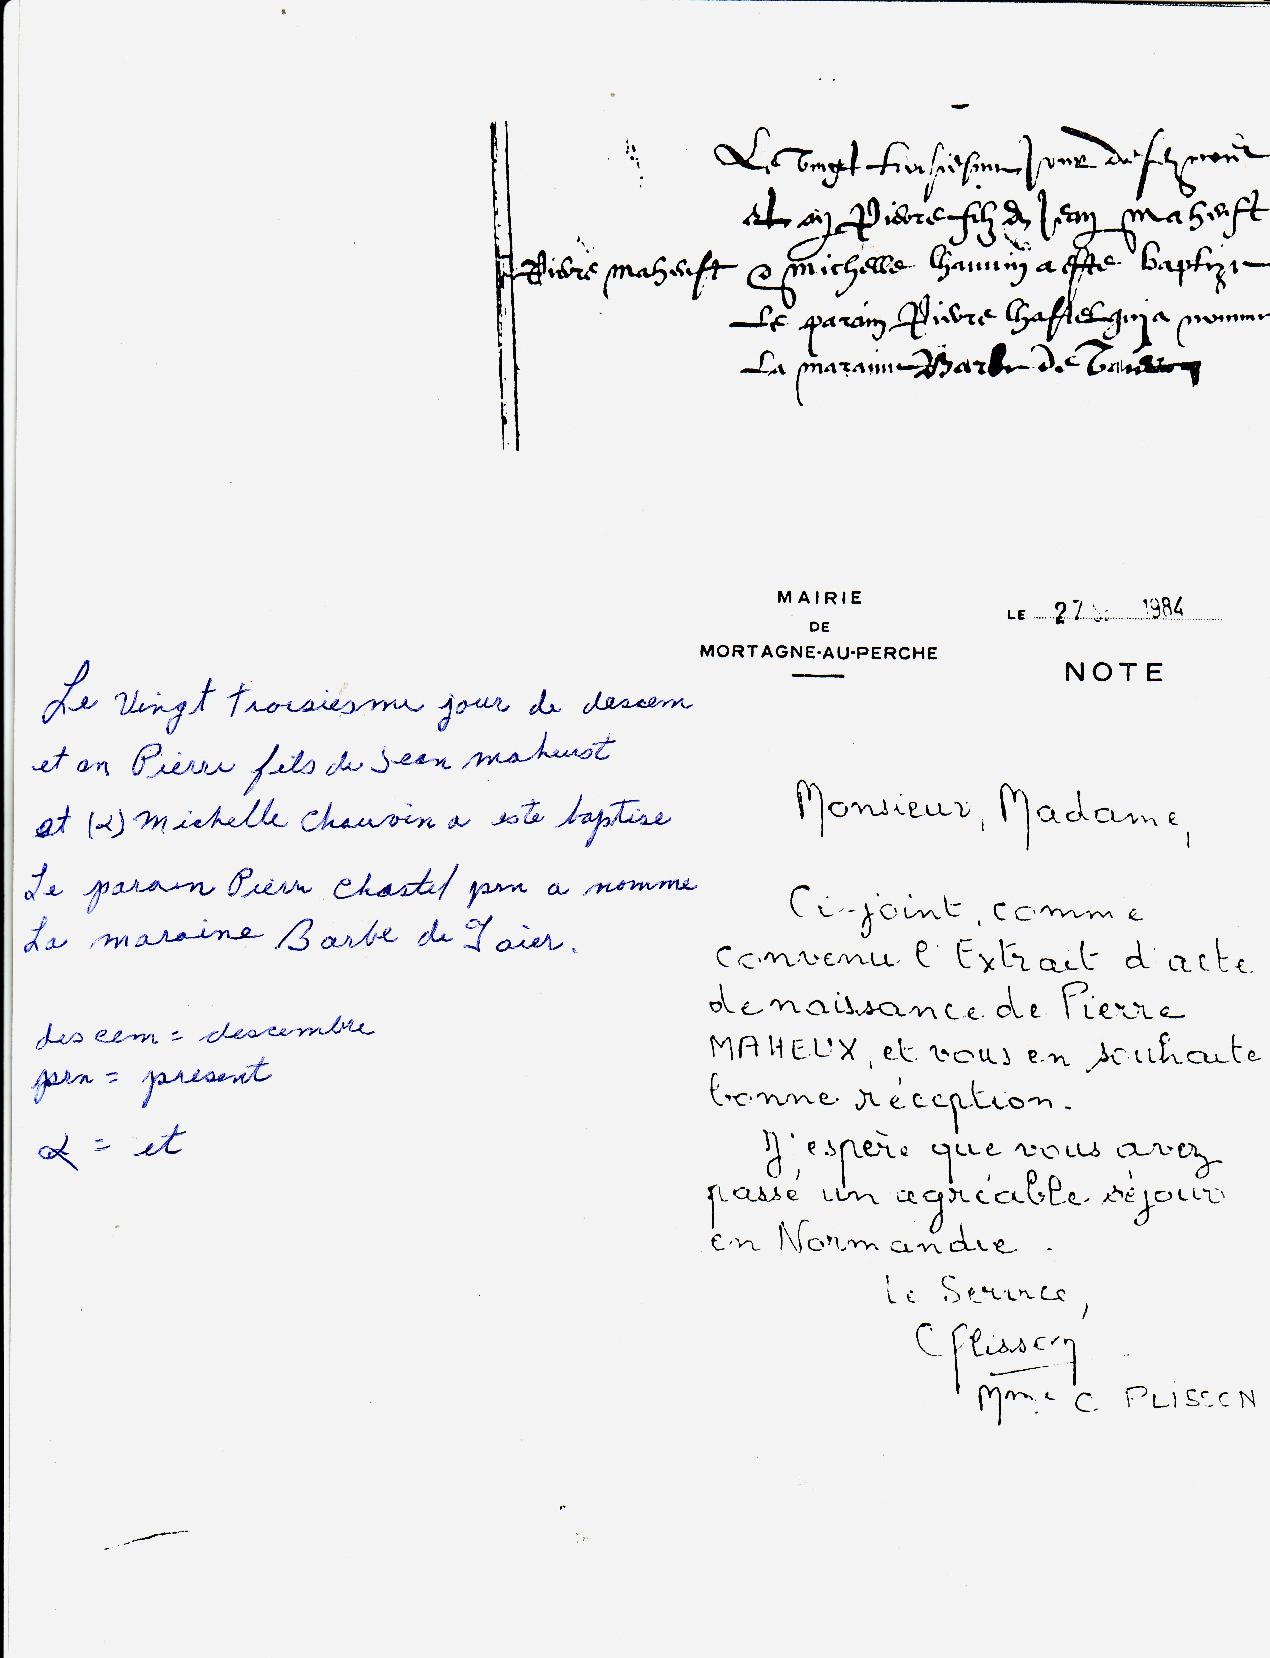 Le vingt troisiesme jour de
et an Pierre filz de Jean maheust
Pierre maheust & michelle chauvin a este baptize
Le parain Pierre Chastel qui a nomme
La maraine Barbe de
MAIRIE
DE
MORTAGNE-AU-PERCHE
LE 27 1984
NOTE
Le Vingt troisiesme jour de descem
et an Pierre fils de Jean maheust
et (&) michelle Chauvin a este baptise
Le parain Pierre Chastel prn a nomme
La maraine Barbe de Toier.
descem = descembre
prn = present
& = et
Monsieur, Madame,
Ci-joint, comme
convenu l'Extrait d'acte
de naissance de Pierre
MAHEUX, et vous en souhaite
bonne réception.
J'espère que vous avez
passé un agréable séjour
en Normandie.
Le Service,
C Plisson
Mme C. PLISSON